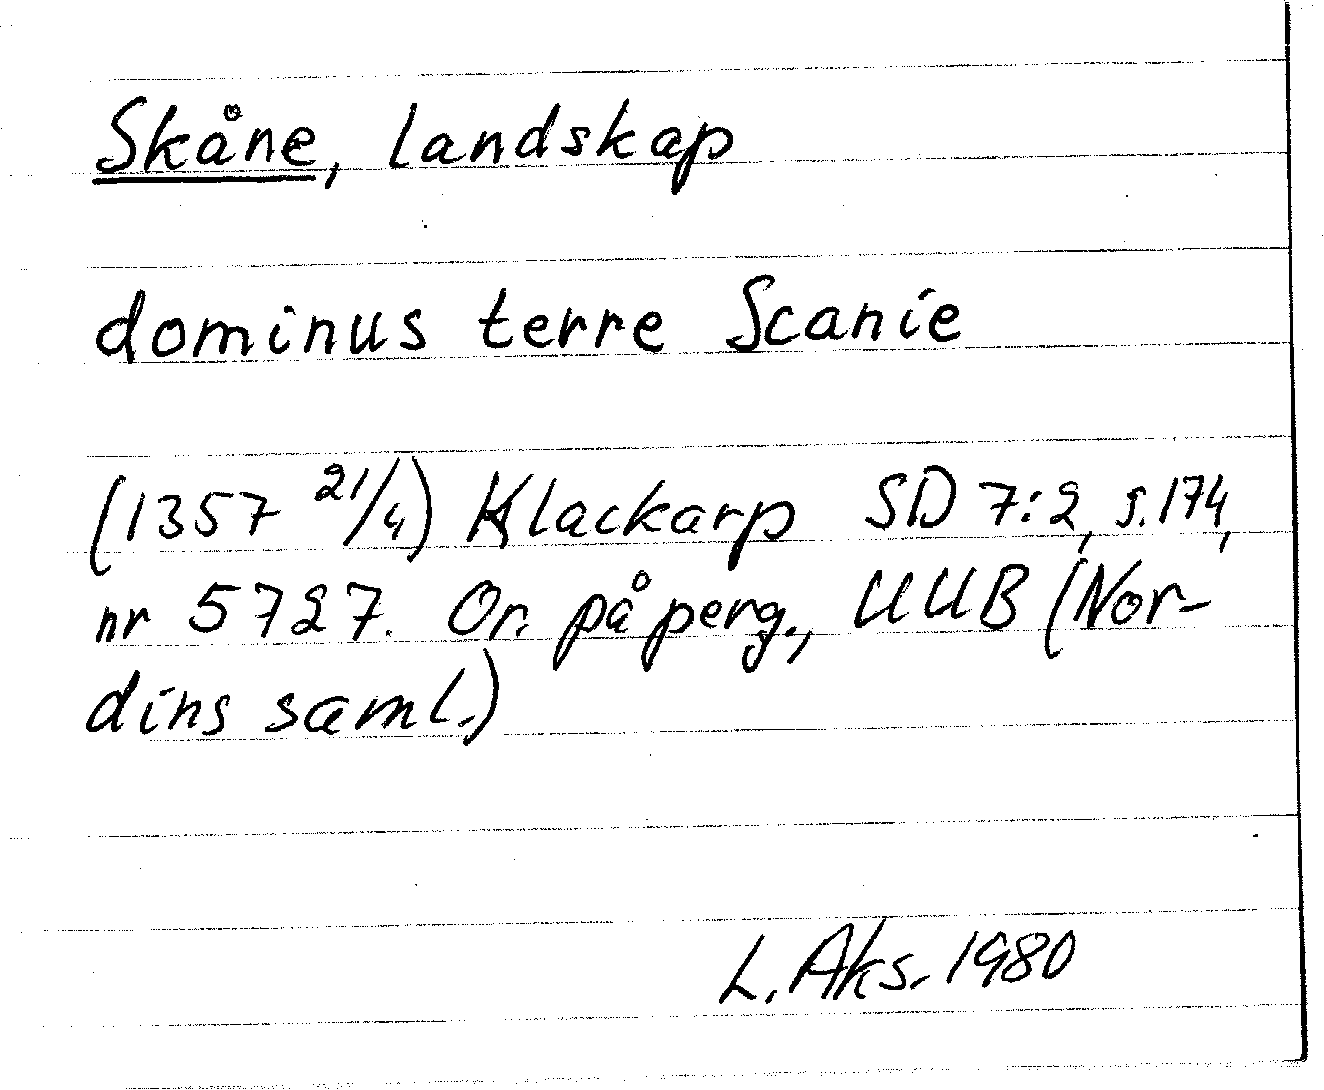 Skåne, landskap
dominus terre Scanie
(1357 21/4) Klackarp SD 7:2, s. 174,
nr 5727. Or. på perg., UUB (Nor-
dins saml.)
L. Aks. 1980